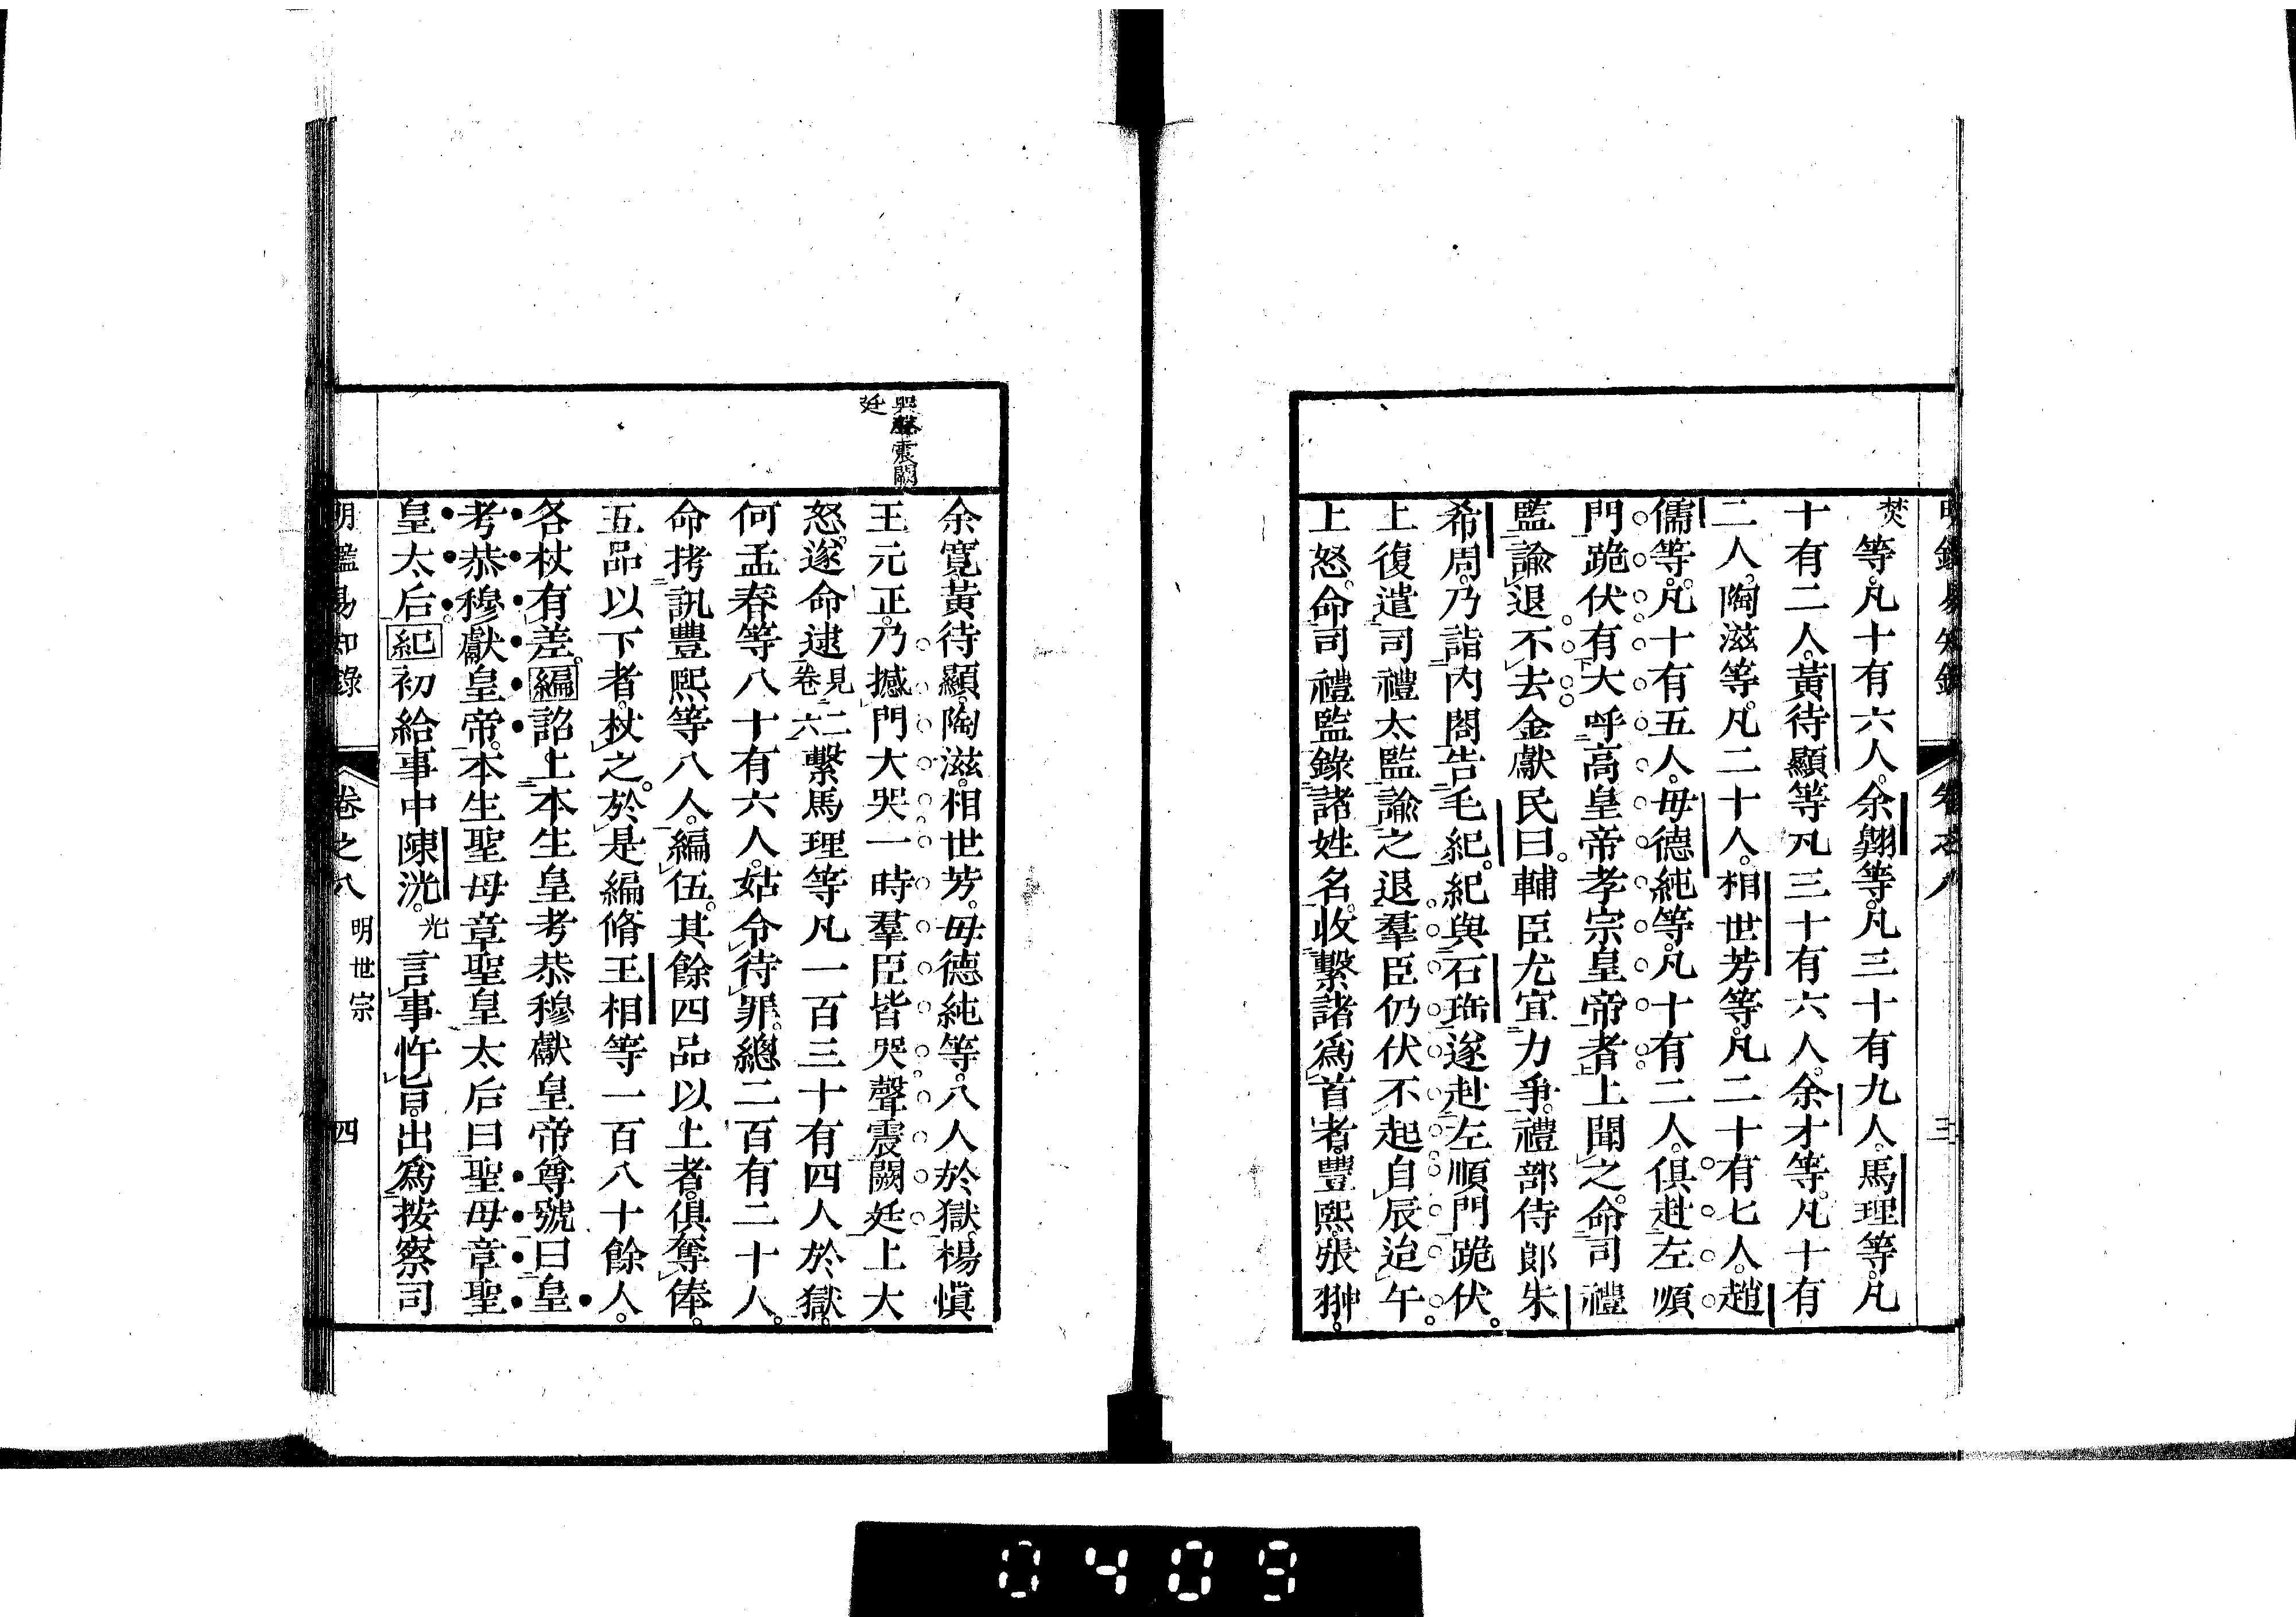 明鑑易知錄　卷之八　三
燓等。凡十有六人。余翱等。凡三十有九人。馬理等。凡
十有二人。黃待顯等凡三十有六人。余才等。凡十有
二人。陶滋等。凡二十人。相世芳等。凡二十有七人。趙
儒等。凡十有五人。毋德純等。凡十有二人。俱赴左順
門跪伏。有大呼高皇帝孝宗皇帝者。上聞之。命司禮
監諭退。不去。金獻民曰。輔臣尤宜力爭。禮部侍郞朱
希周。乃詣內閣告毛紀。紀與石珤遂赴左順門跪伏。
上復遣司禮太監諭之退。羣臣仍伏不起。自辰迨午。
上怒。命司禮監錄諸姓名。收繫諸爲首者。豐熙。張翀。
哭聲震闕
廷
余寬黃待顯。陶滋。相世芳。毋德純等。八人於獄。楊愼
王元正。乃撼門大哭一時羣臣皆哭聲震闕廷上大
怒。遂命逮見二卷六繫馬理等凡一百三十有四人於獄。
何孟春等八十有六人。姑令待罪。總二百有二十人。
命拷訊豐熙等八人。編伍。其餘四品以上者。俱奪俸。
五品以下者。杖之。於是編脩王相等一百八十餘人。
各杖有差。編詔上本生皇考恭穆獻皇帝尊號曰皇
考恭穆獻皇帝。本生聖母章聖皇太后曰聖母章聖
皇太后。紀初給事中陳洸。光言事忤旨。出爲按察司
明鑑易知錄　卷之八　明世宗　四
0409